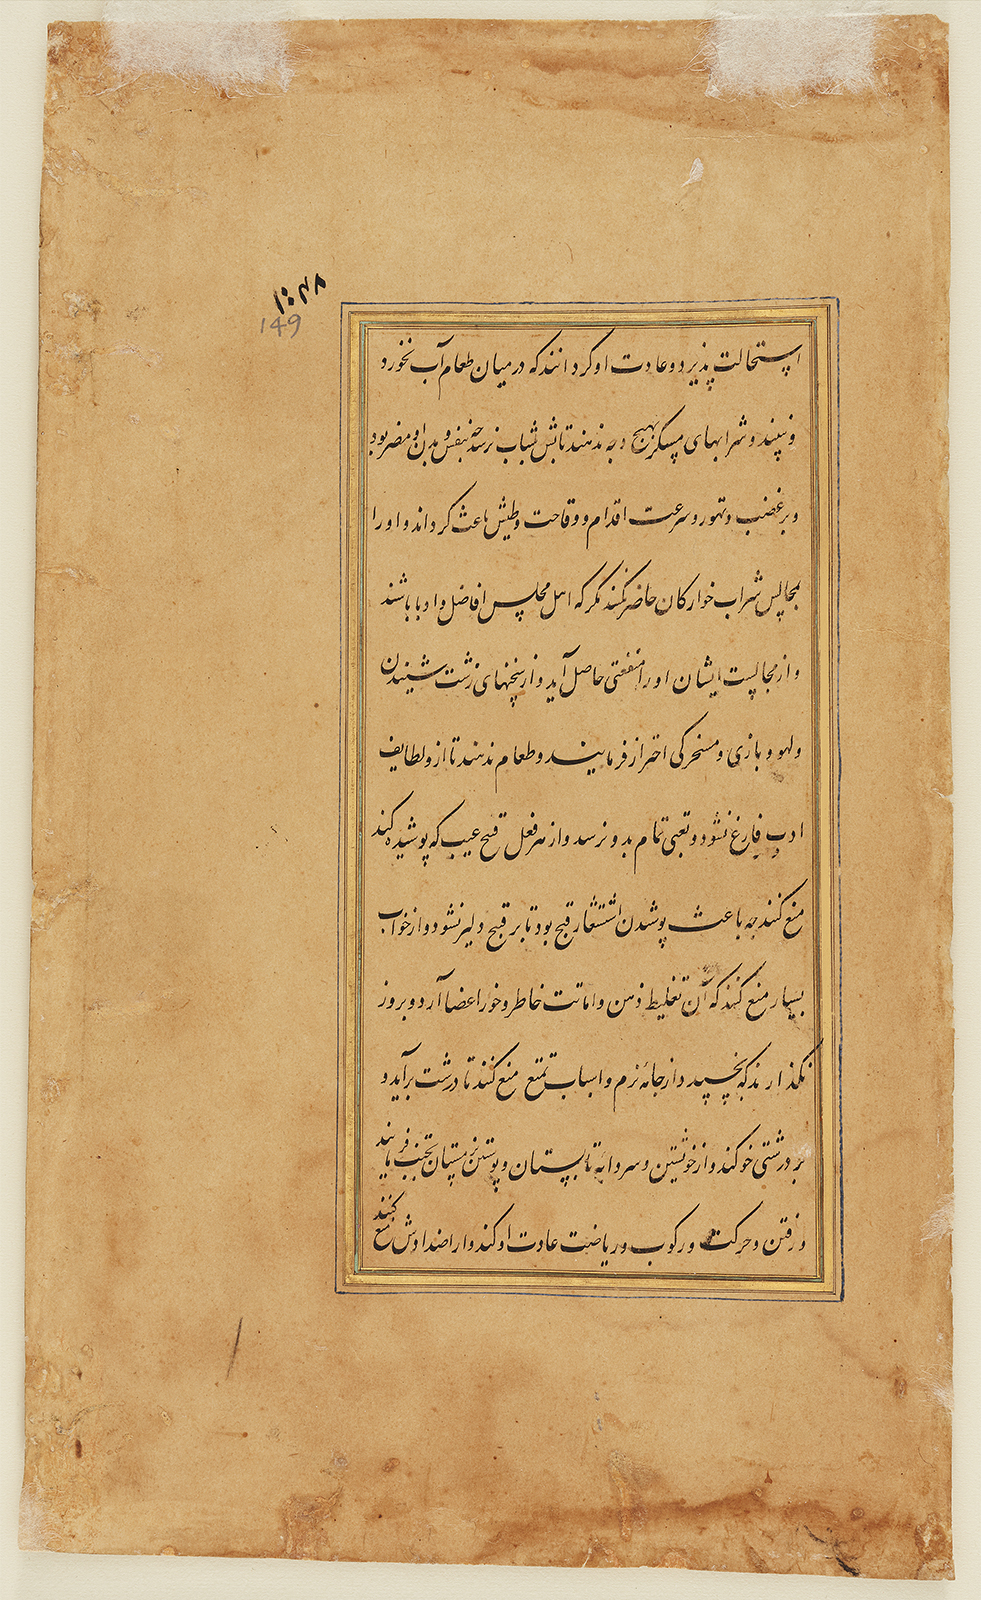 ۱۰۴۸
149
استحالت پذیرد و عادت او گردانند که در میان طعام آب نخورد
و نبیند و شرابهای مسکر بهیچ وجه ندهند تا بسن شباب نرسد چه بنفس و بدن او مضر بود
و بر غضب و تهور و سرعت اقدام و وقاحت و طیش باعث گرداند و او را
بمجالس شراب خوارکان حاضر نکنند مگر که اهل مجلس افاضل و ادبا باشند
و از مجالست ایشان او را منفعتی حاصل آید و از سخنهای زشت شنیدن
و لهو و بازی و مسخرگی احتراز فرمایند و طعام ندهند تا از وظایف
ادب فارغ نشود و تعبی تمام بدو نرسد و از هر فعل قبیح عیب که پوشیده کند
منع کنند چه باعث پوشیدن استشعار قبح بود تا بر قبیح دلیر نشود و از خواب
بسیار منع کنند که آن تغلیظ ذهن و اماتت خاطر و خور اعضا آرد و بروز
نگذارند که بخسپد و از جامه نرم و اسباب تمتع منع کنند تا درشت برآید و
بر درشتی خو کند و از خویشتن و سردابه تابستان و پوستین زمستان تجنب فرمایند
و رفتن و حرکت و رکوب و ریاضت عادت او کند و از اضدادش منع کنند